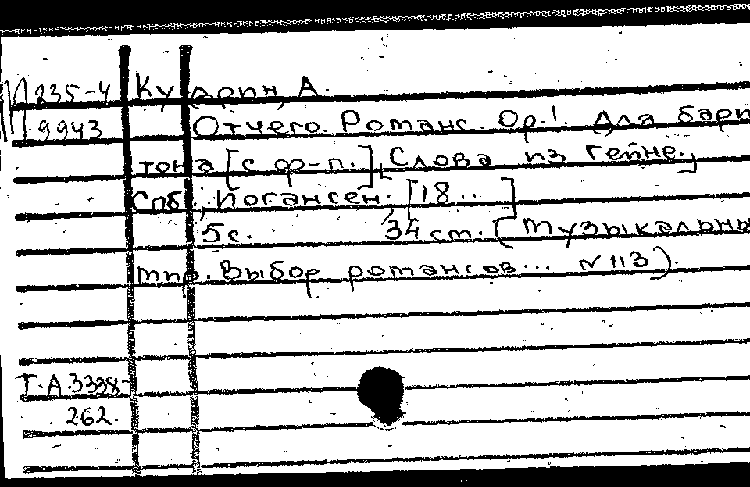 П 235-4 Кудрин, А.
9943 Отчего. Романс. Ор.1. Для бари
тона [с ф-п.], [Слова из Гейне.]
Спб., Иогансен. [18...]
5 с. 34 см. [Музыкальны
мир. Выбор романсов... N 113).
Т.А.3398-
262.